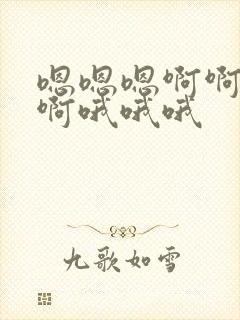 嗯嗯嗯啊啊
啊哦哦哦
九歌如雪